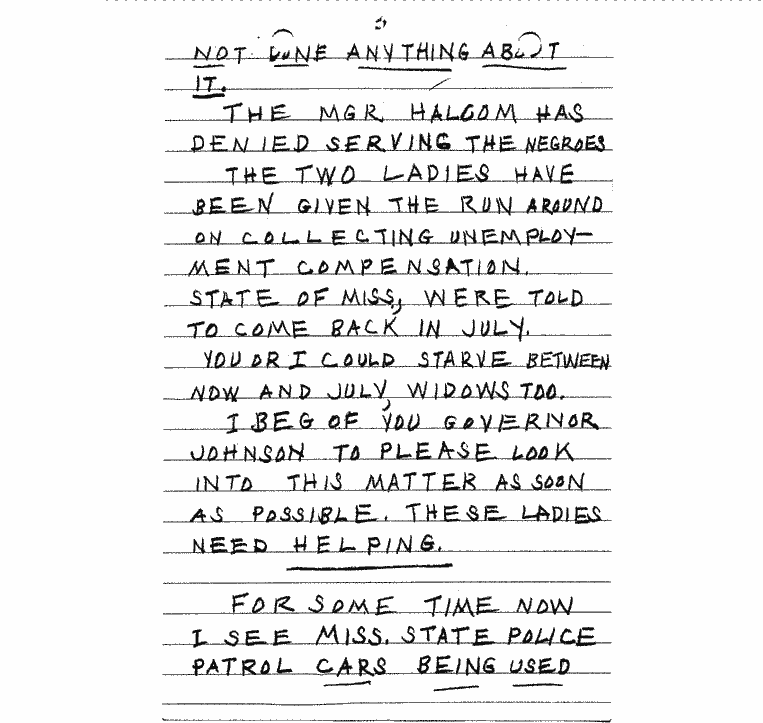 NOT DONE ANYTHING ABOUT
IT.
THE MGR HALCOM HAS
DENIED SERVING THE NEGROES
THE TWO LADIES HAVE
BEEN GIVEN THE RUN AROUND
ON COLLECTING UNEMPLOY-
MENT COMPENSATION.
STATE OF MISS, WERE TOLD
TO COME BACK IN JULY.
YOU OR I COULD STARVE BETWEEN
NOW AND JULY, WIDOWS TOO.
I BEG OF YOU GOVERNOR
JOHNSON TO PLEASE LOOK
INTO THIS MATTER AS SOON
AS POSSIBLE. THESE LADIES
NEED HELPING.
FOR SOME TIME NOW
I SEE MISS. STATE POLICE
PATROL CARS BEING USED